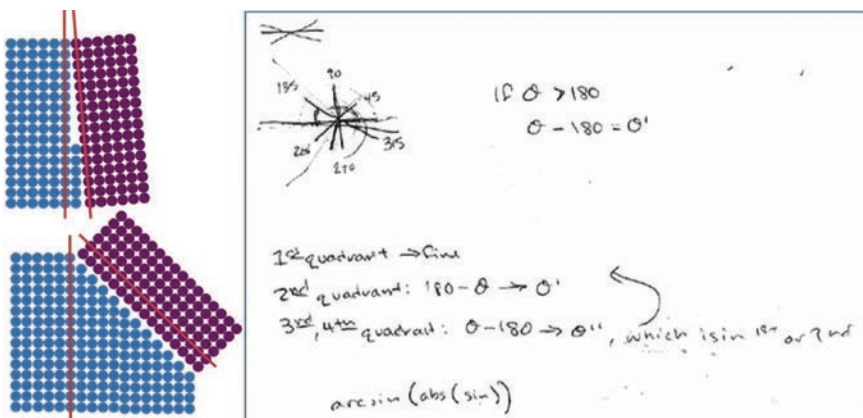 90
135
45
315
270
If θ > 180
θ - 180 = θ'
1st quadrant → fine
2nd quadrant: 180 - θ → θ'
3rd, 4th quadrat: θ - 180 → θ'', which is in 1st or 2nd
arcsin (abs(sin))